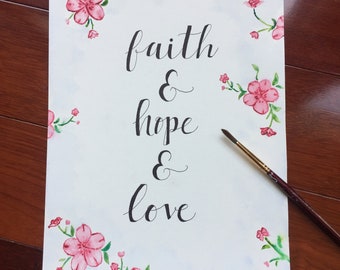 faith
&
hope
&
love